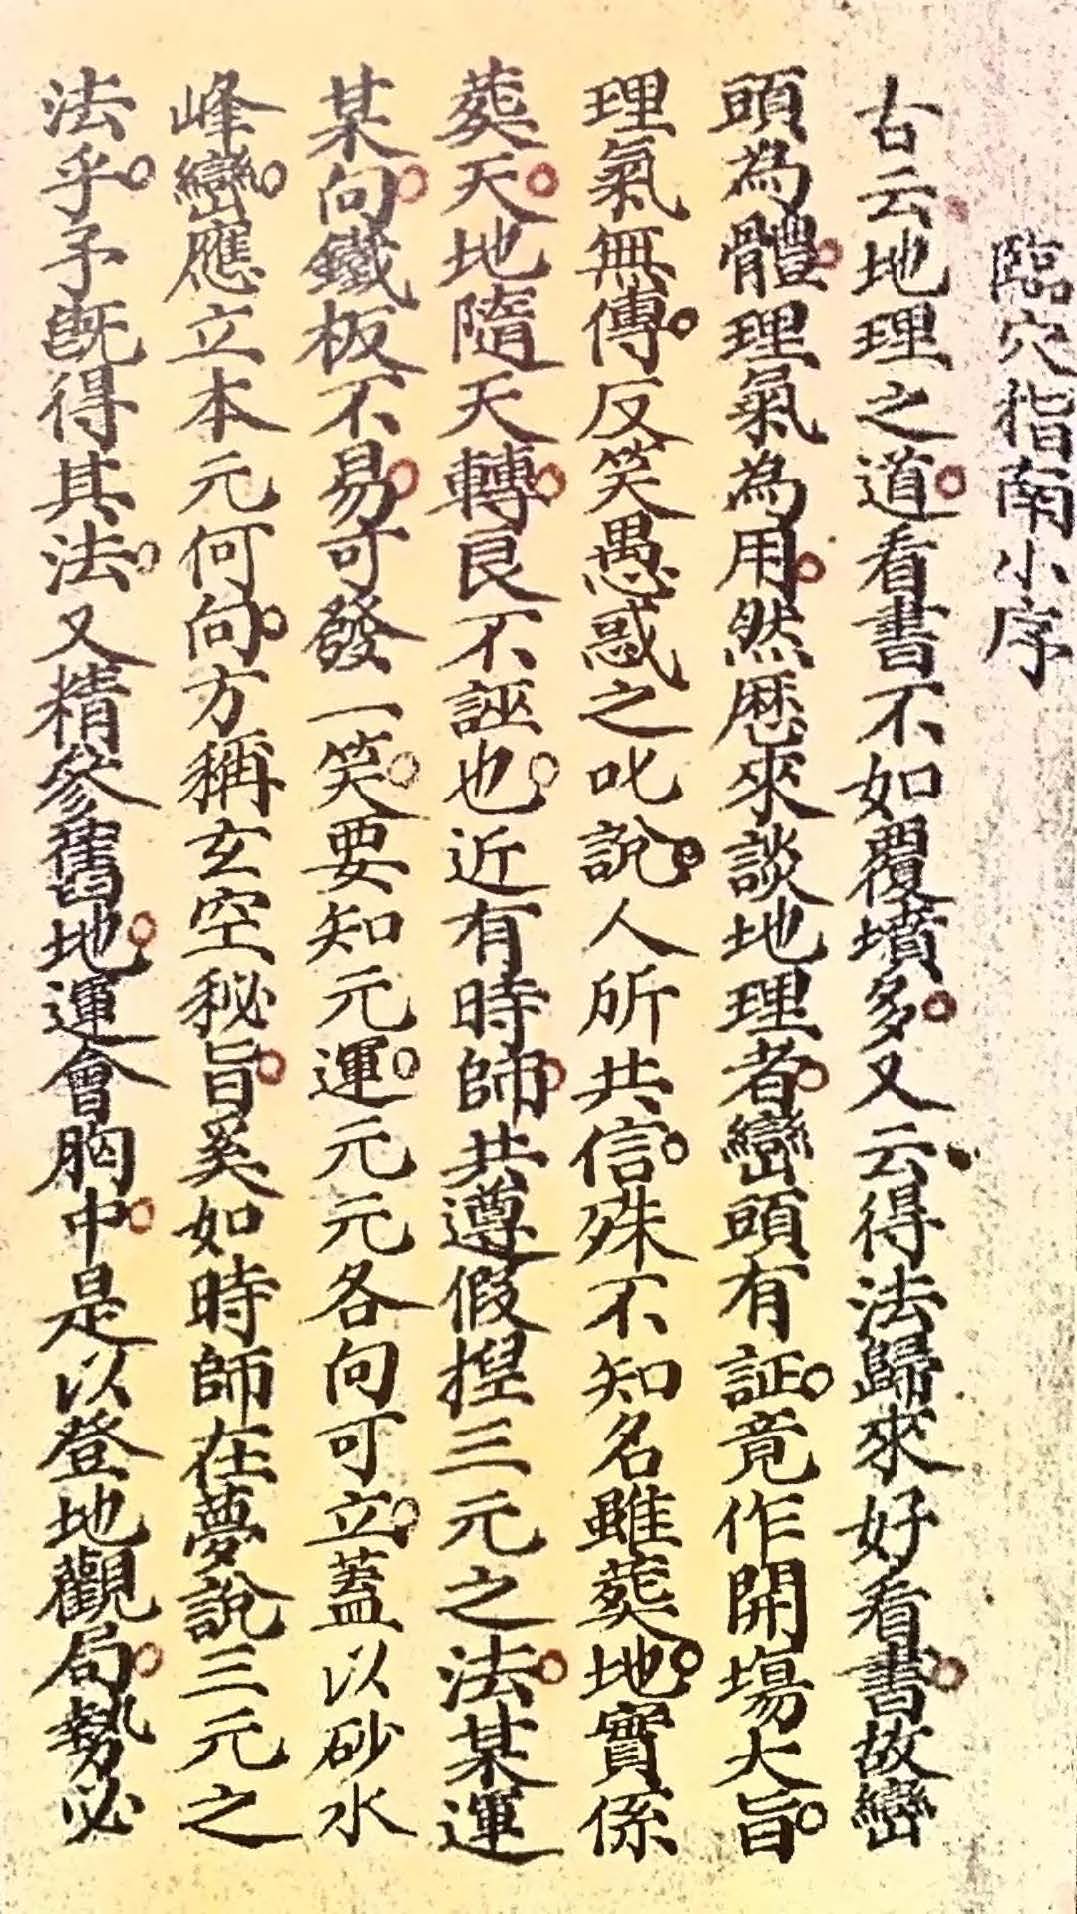 臨穴指南小序
古云地理之道看書不如覆墳多又云得法歸來好看書故巒
頭為體理氣為用然厯來談地理者巒頭有証竟作開塲大旨
理氣無傳反笑愚惑之叱說人所共信殊不知名雖葬地實係
葬天地隨天轉良不誣也近有時師共遵假揑三元之法某運
某向鐵板不易可發一笑要知元運元元各向可立蓋以砂水
峰巒應立本元何向方稱玄空秘旨奚如時師在夢說三元之
法乎予既得其法又精參舊地運會胸中是以登地觀局勢必